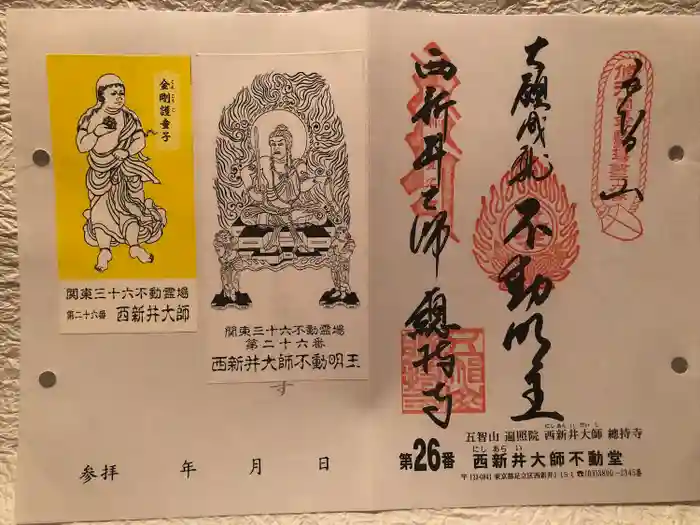 五智山
大願成就
不動明王
西新井大師 總持寺
金剛護童子
こんごうごどうじ
関東三十六不動霊場
第二十六番 西新井大師
関東三十六不動霊場
第二十六番
西新井大師不動明王
参拝 年 月 日
五智山 遍照院 西新井大師 總持寺
にしあらいだいし
第26番 西新井大師不動堂
にしあらい
東京都足立区西新井1-15-1 ☎(03)3890-2345番